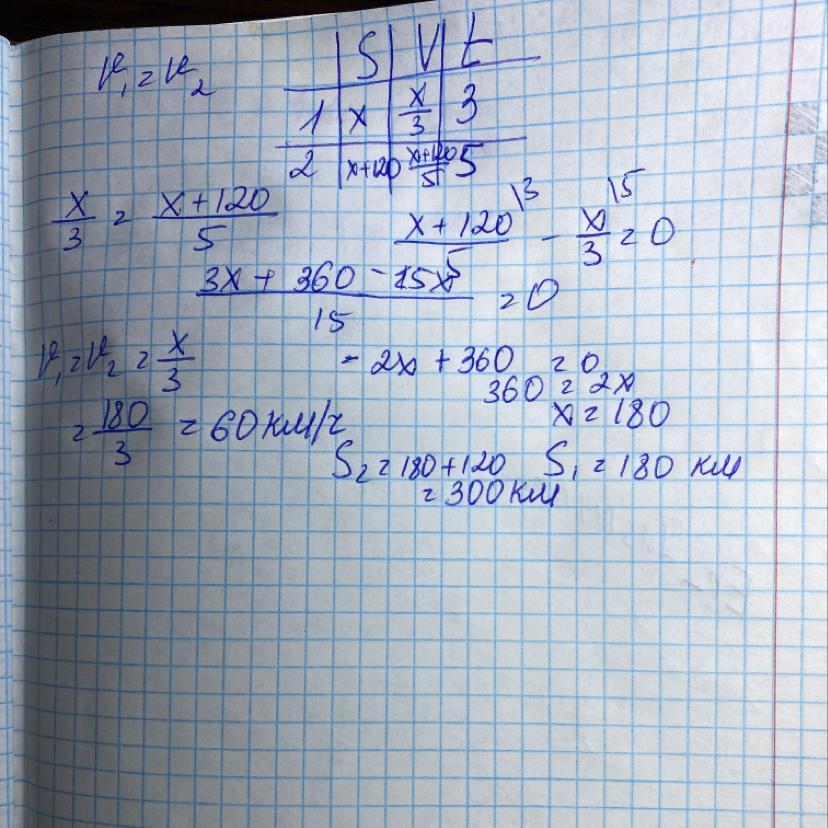 V₁ = V₂
S V t
1 x x/3 3
2 x+120 x+120/5 5
x/3 = x+120/5
x+120/5 \3 - x/3 \5 = 0
3x + 360 - 5x/15 = 0
V₁ = V₂ = x/3
- 2x + 360 = 0
360 = 2x
x = 180
= 180/3 = 60 км/ч
S₂ = 180 + 120
= 300 км
S₁ = 180 км